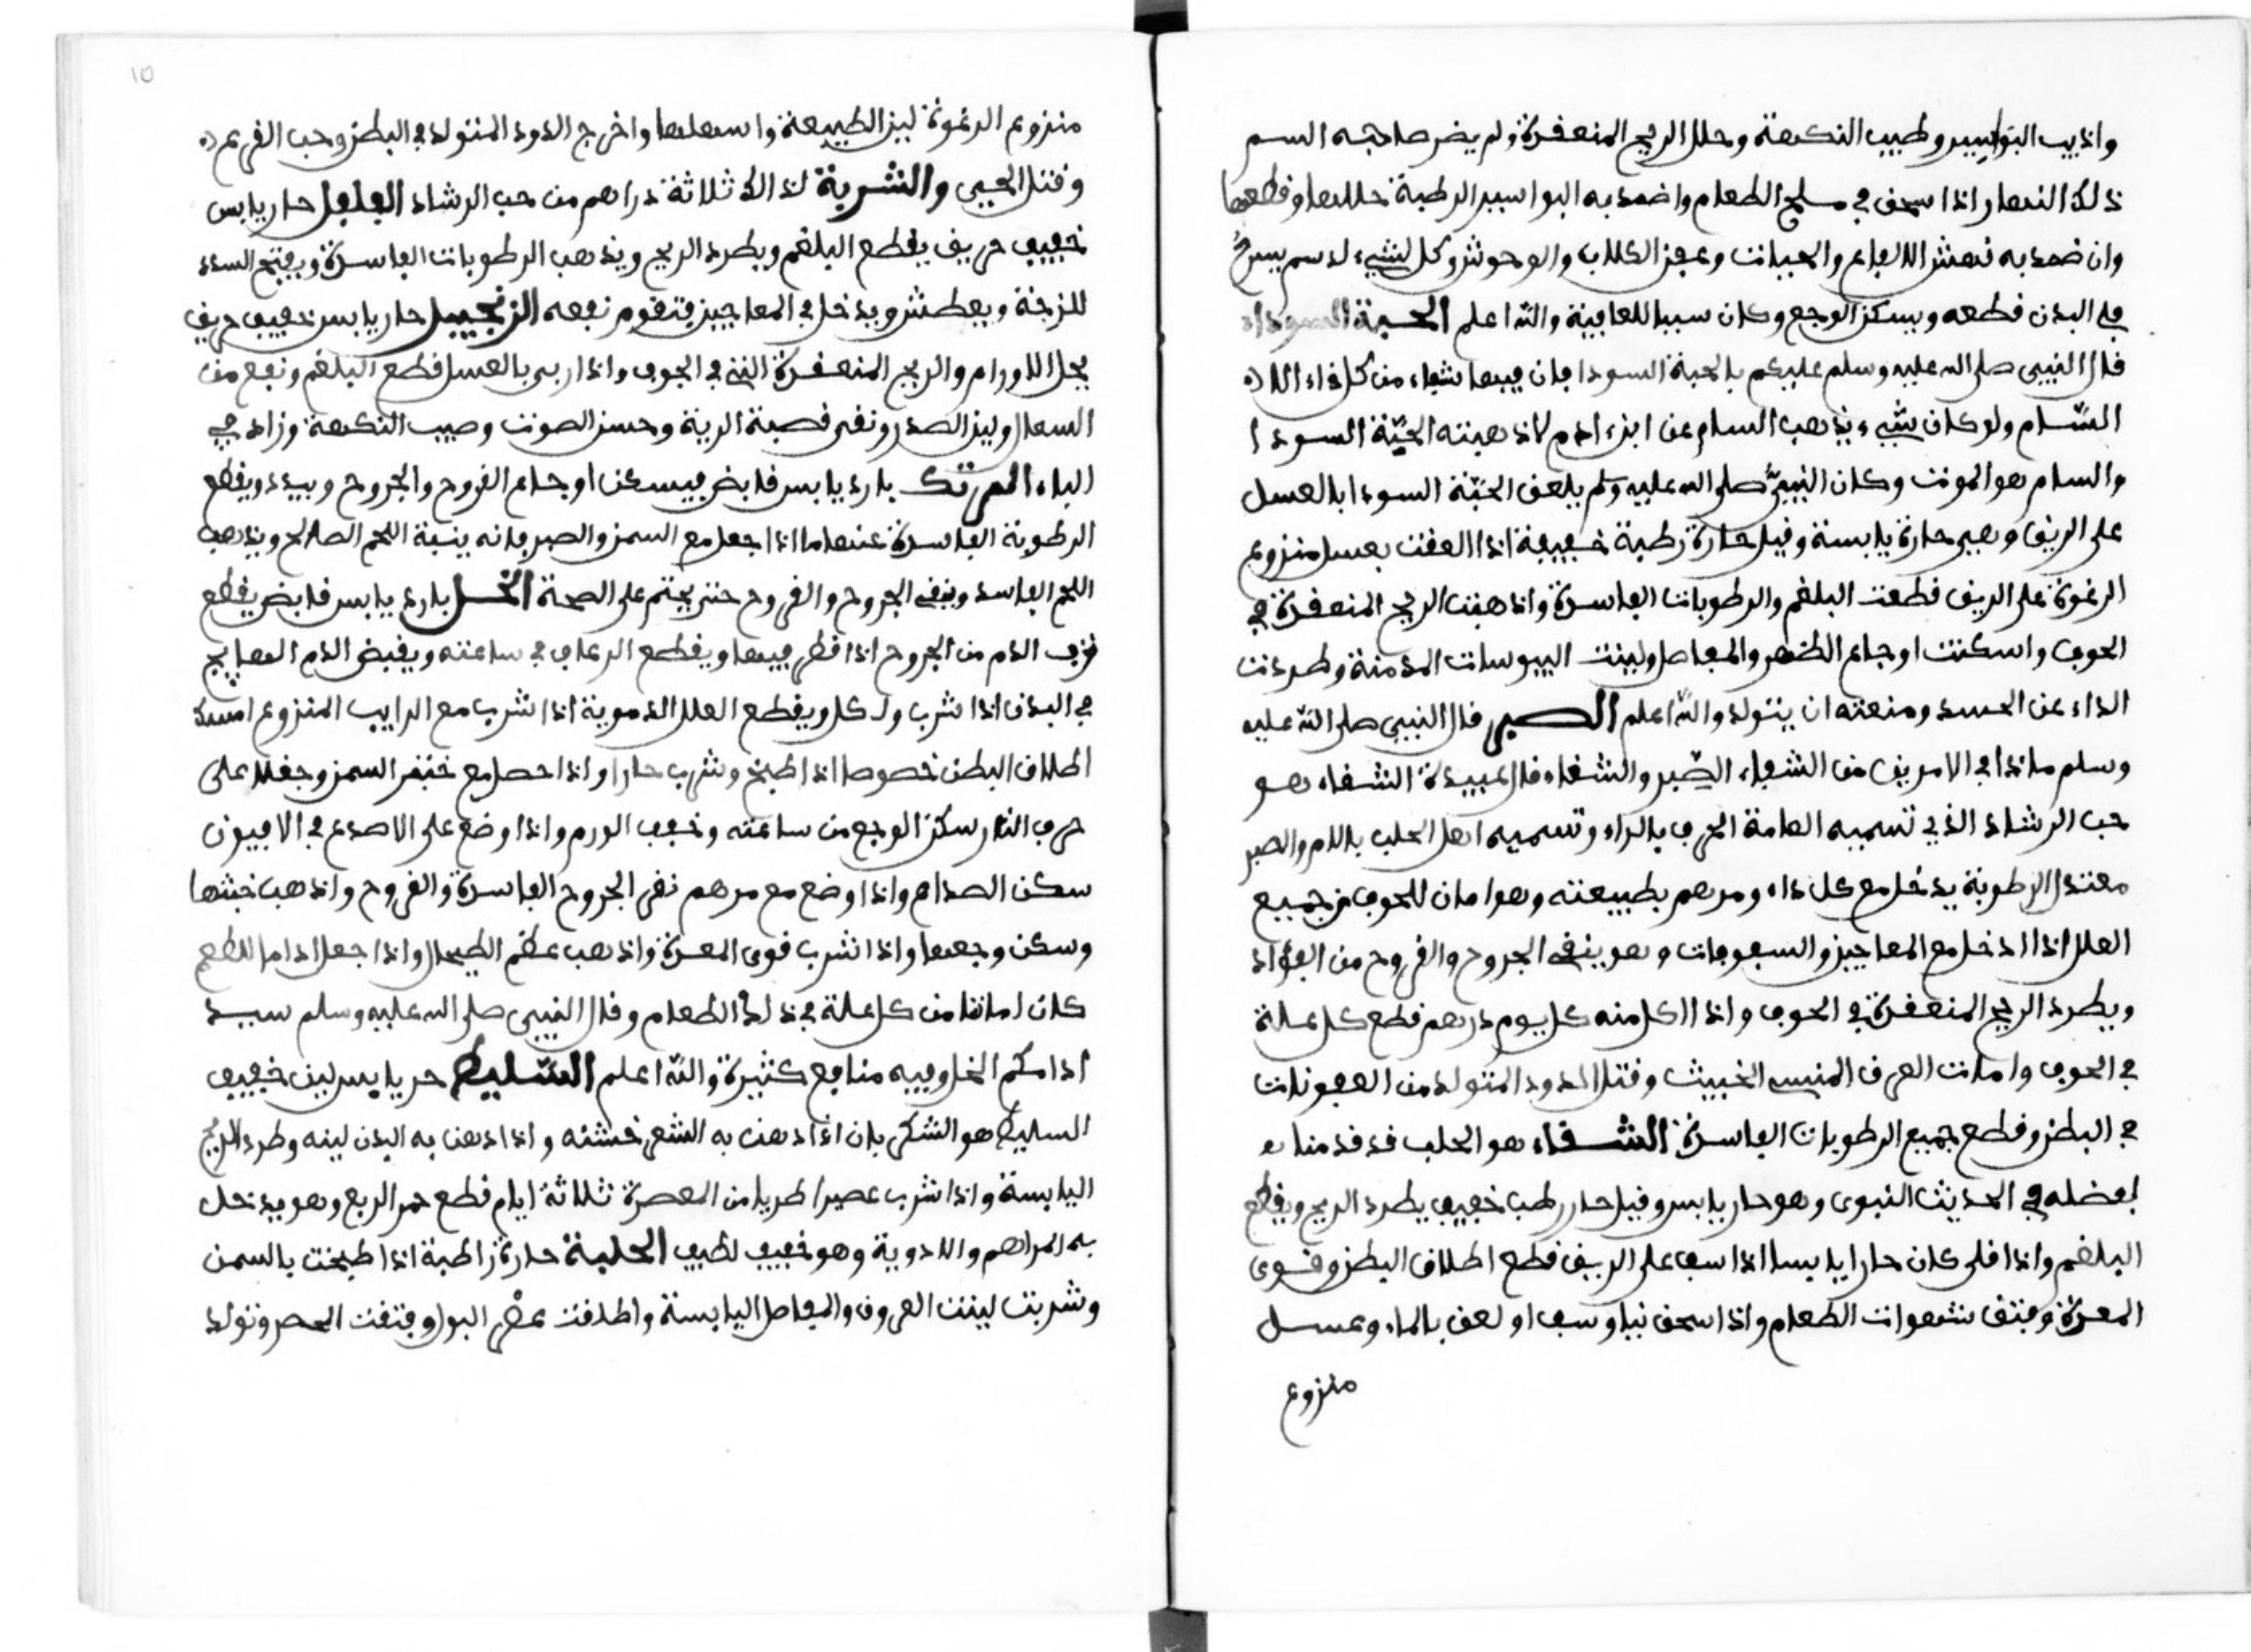 واذيب البواسير وطيب النكهة وحلل الريح المنعفدة ولم يضر صاحبه السم
ذلك النهار واذا سحق في ملح الطعام واضمد به البواسير الرطبة حللها وقطعها
وان ضمد به نهش الافاعي والحيات وعفر الكلاب والوحوش وكل شيء له سم يسرح
في البدن قطعه ويسكن الوجع وكان سببا للعافية والله اعلم الحبة السوداء
قال النبيي صلى الله عليه وسلم عليكم بالحبة السودا فان فيها شفاء من كل داء الا
السّام ولو كان شيء يذهب السام عن ابن ادم لاذهبته الحبّة السودا
والسام هو الموت وكان النبيّ صلى الله عليه وسلم يلعق الحبّة السودا بالعسل
على الريق وهي حارة يابسة وقيل حارة رطبة خفيفة اذا العقت بعسل منزوع
الرغوة على الريق قطعت البلغم والرطوبات الفاسدة واذهبت الريح المنعقدة في
الجوف واسكنت اوجاع الظهر والمفاصل ولينت اليبوسات المدمنة وطردت
الداء عن الجسد ومنعته ان يتولد والله اعلم الصبر قال النبيي صلى الله عليه
وسلم ماذا في الامرين من الشفاء الصّبر والشفاء قال عبيدة الشفاء هو
حب الرشاد الذي تسميه العامة الحرف بالراء وتسميه اهل الحلب باللام والصبر
معتدل الرطوبة يدخل مع كل داء ومرهم بطبيعته وهو امان للجوف من جميع
العلل اذا ادخل مع المعاجين والسفوفات وهو ينفي الجروح والقروح من الفؤاد
ويطرد الريح المنعفدة في الجوف واذا اكل منه كل يوم درهم قطع كل علة
في الجوف وامات العرق المنسي الخبيث وقتل الدود المتولد من العفونات
في البطن وقطع جميع الرطوبات الفاسدة الشفاء هو الحلب قد قدمنا
فضله في الحديث النبوي وهو حار يابس وقيل حار رطب خفيف يطرد الريح ويقطع
البلغم واذا قلي كان حارا يابسا اذا سف على الريق قطع اطلاق البطن وقوى
المعدة وفتق شهوات الطعام واذا سحق نيا وسف او لعق بالماء وعسل
منزوع
منزوع الرغوة لين الطبيعة واسهلها واخرج الدود المتولد في البطن وحب القرع
وقتل الحيي والشربة لذالك ثلاثة دراهم من حب الرشاد الفلفل حار يابس
خفيف حريف يقطع البلغم ويطرد الريح ويذهب الرطوبات الفاسدة ويفتح السدد
للزجة ويعطش ويدخل في المعاجين فتقوم نفعه الزنجبيل حار يابس خفيف حريف
يحل الاورام والريح المنعفدة التي في الجوف واذا ربي بالعسل قطع البلغم ونفع من
السعال ولين الصدر ونقى قصبة الرية وحسن الصوت وطيب النكهة وزاد في
الباء المرتك بارد يابس قابض فيسكن اوجاع القروح والجروح ويبدد ويقطع
الرطوبة الفاسدة عنها ما اذا جعل مع السمن والصبر فانه ينبة اللحم الصالح ويذهب
اللحم الفاسد وينفي الجروح والقروح حتى يختم على الصحة الخل بارد يابس قابض يقطع
نزف الدم من الجروح اذا قطر فيها ويقطع الرعاف في ساعته ويقبض الدم الهايج
في البدن اذا شرب واكل ويقطع العلل الدموية اذا شرب مع الرايب المنزوع امسك
اطلاق البطن خصوصا اذا طبخ وشرب حارا واذا حصل مع خيفر السمن وجعل على
حرق النار سكن الوجع من ساعته وخفف الورم واذا وضع على الاصدع في الافيون
سكن الصداع واذا وضع مع مرهم نقى الجروح الفاسدة والقروح واذهب خبثها
وسكن وجعها واذا شرب قوى المعدة واذهب عظم الطحال واذا جعل اداما للطعم
كان امانا من كل علة في ذلك الطعام وقال النبيي صلى الله عليه وسلم سيد
ادامكم الخل وفيه منافع كثيرة والله اعلم السّليط حر يابس لين خفيف
السليط هو الشكي بان اذا دهن به الشعر خشنه واذا دهن به البدن لينه وطرد الريح
اليابسة واذا شرب عصيرا طريا من المعصرة ثلاثة ايام قطع حمر الربع وهو يدخل
به المراهم والادوية وهو خفيف لطيف الحلبة حارة راطبة اذا طبخت بالسمن
وشربت لينت العروق والمفاصل اليابسة واطلقت عصر البول وفتفت الحصر وتولد